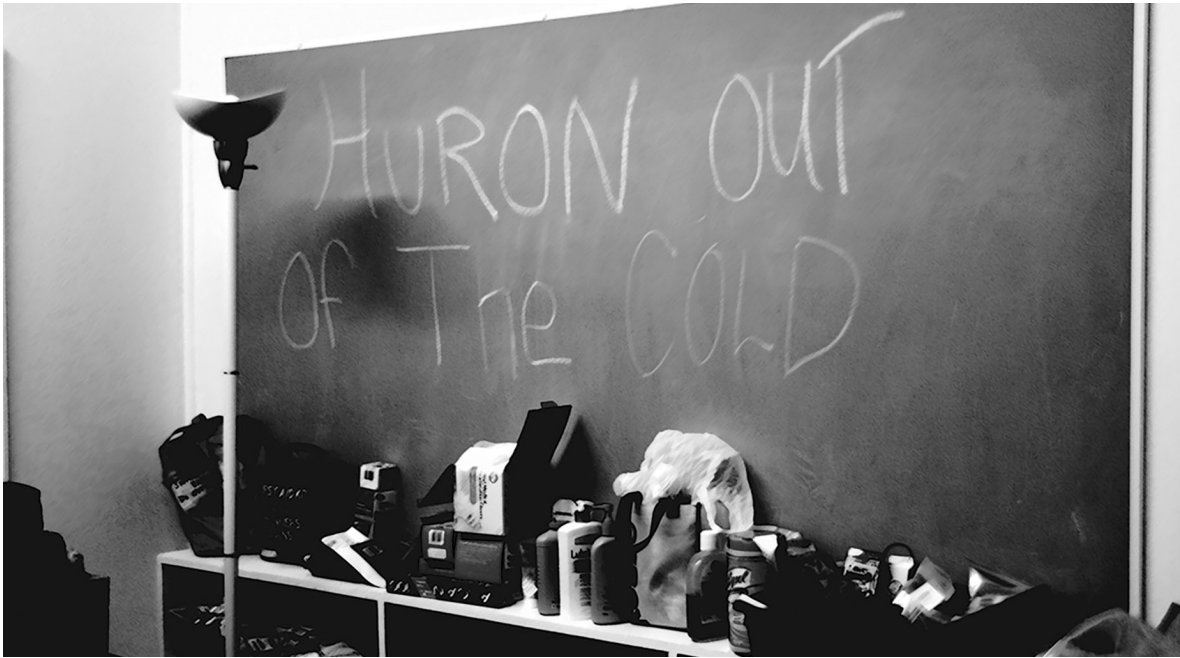 HURON OUT
OF The COLD